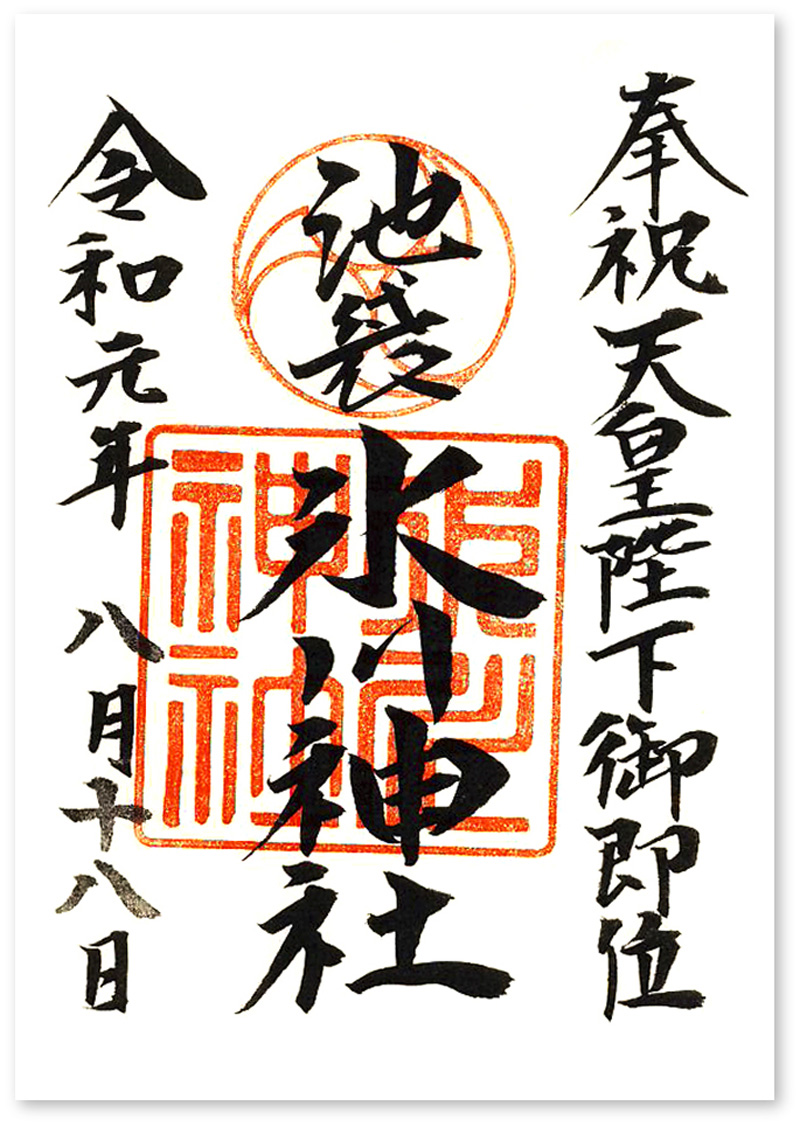 奉祝天皇陛下御即位
池袋氷川神社
令和元年八月十八日